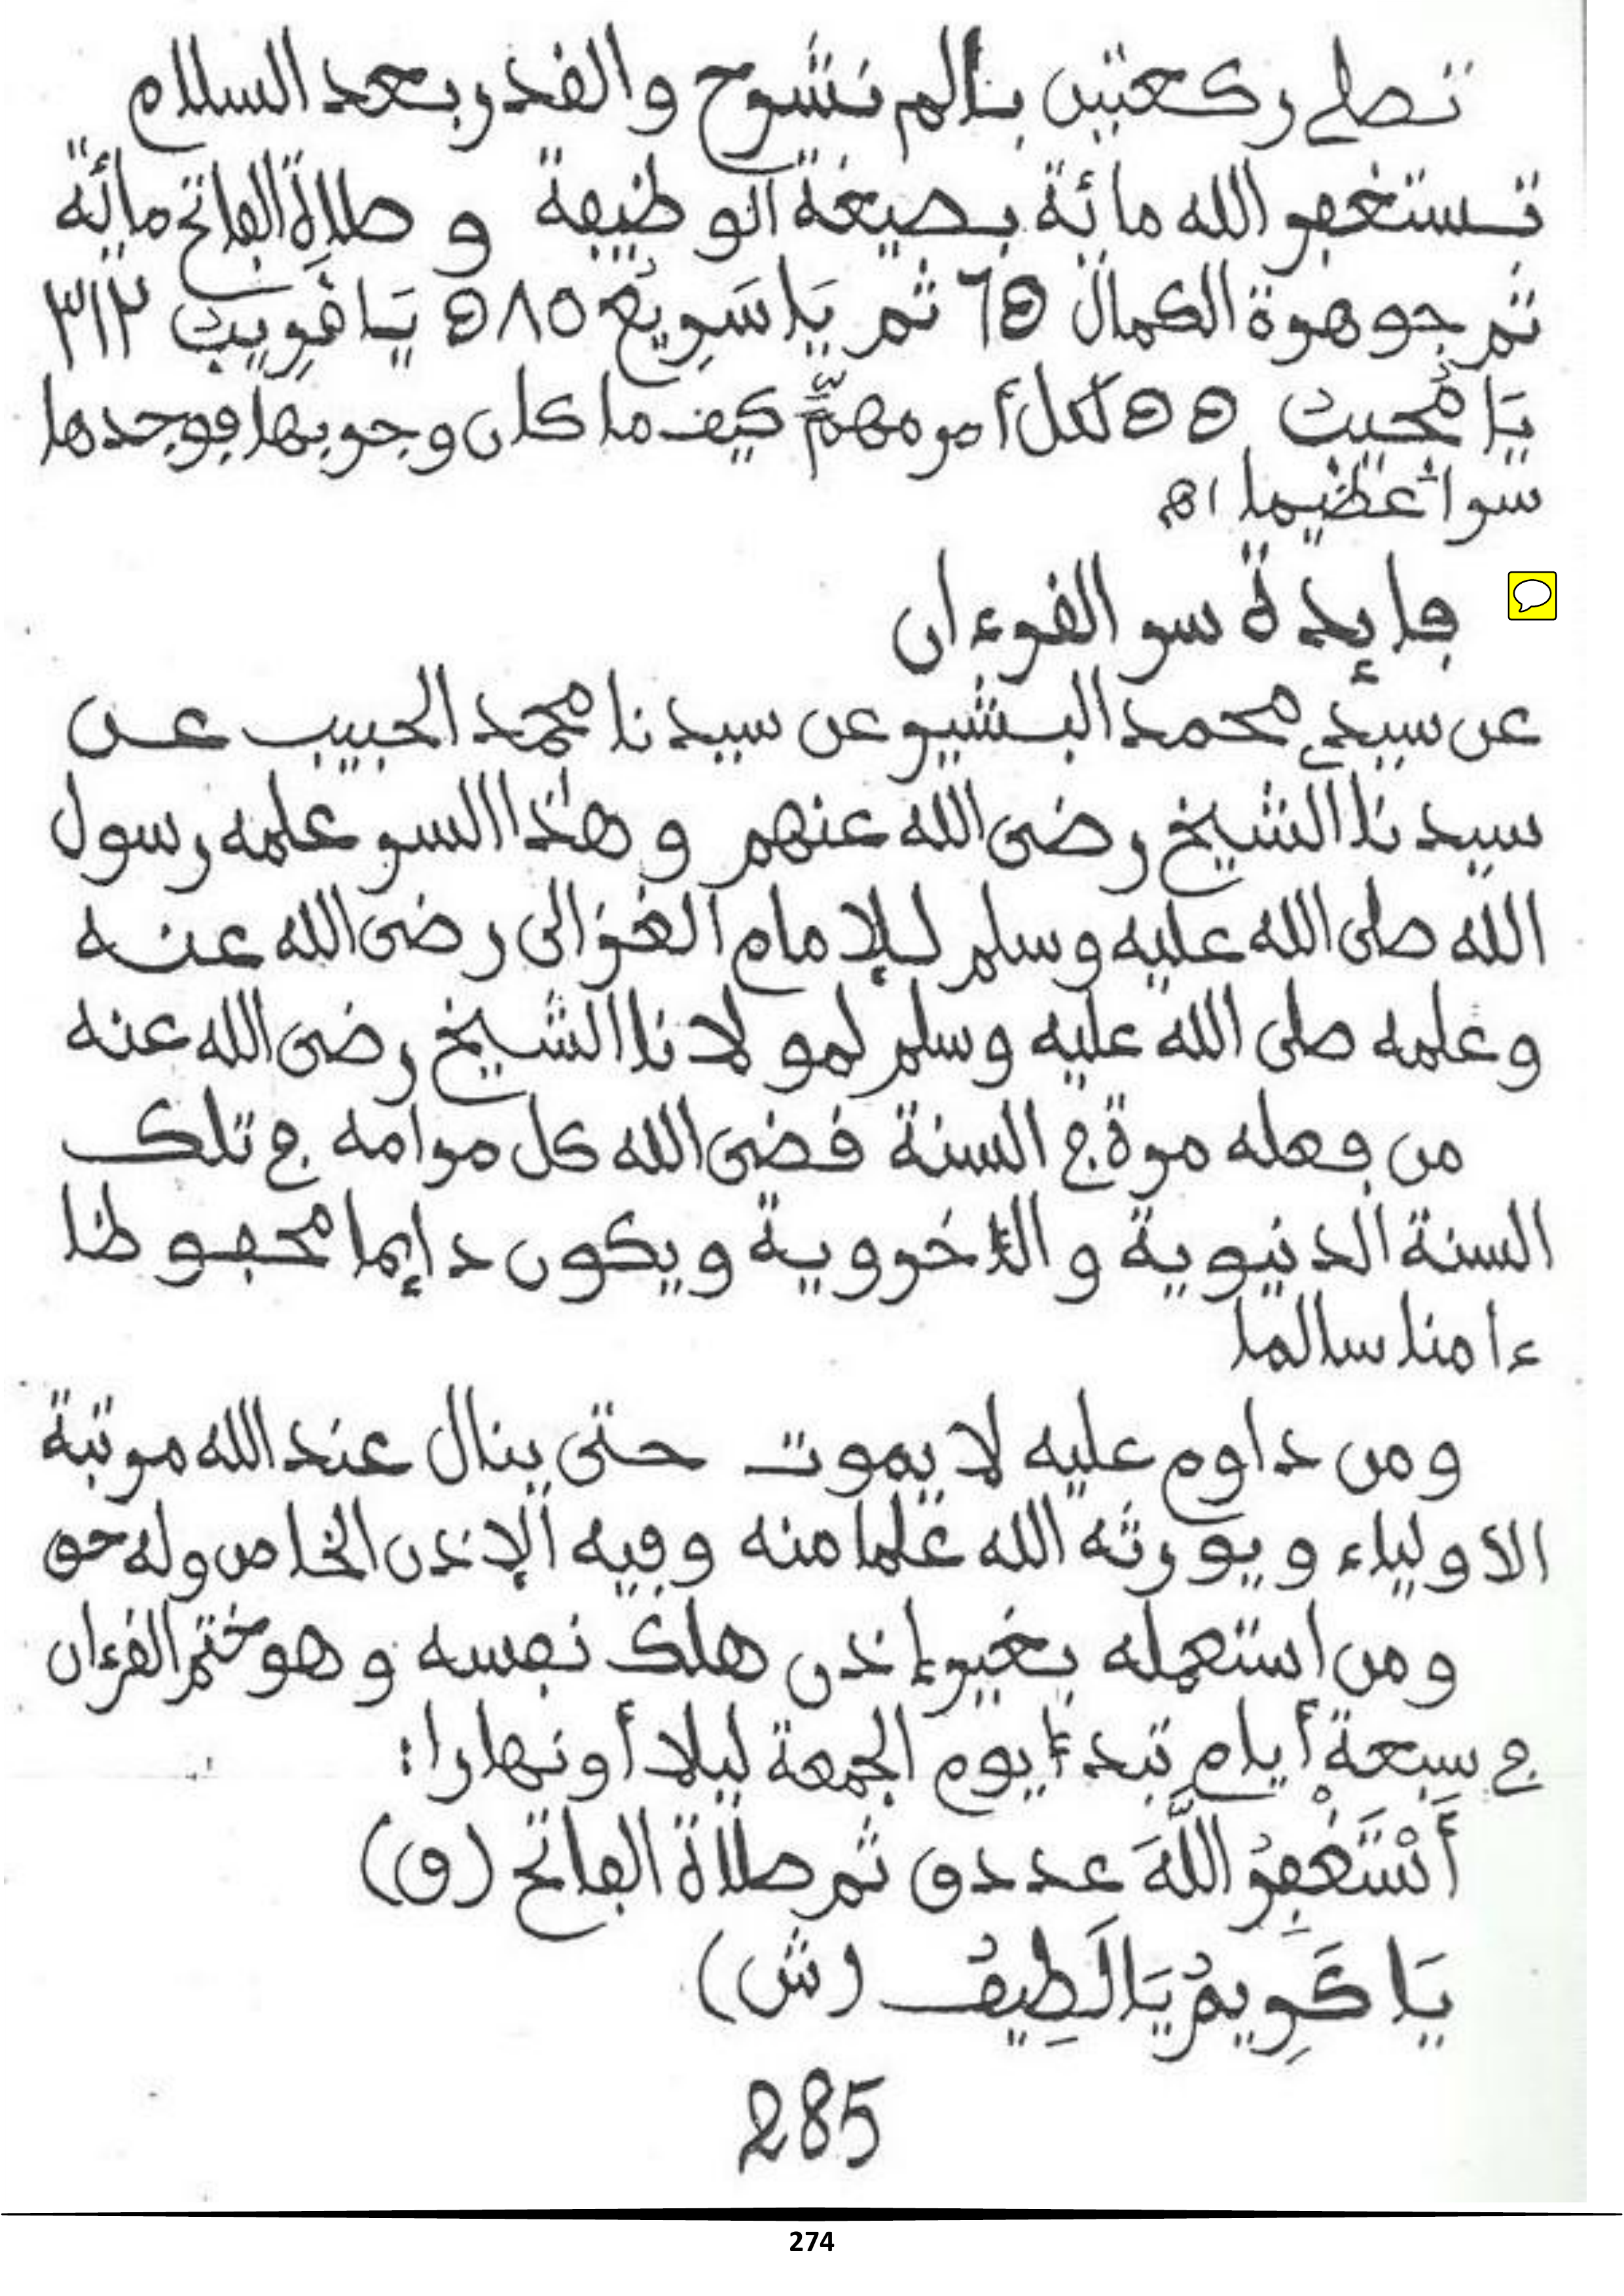 تصلي ركعتين بألم نشرح والقدر بعد السلام
تستغفر الله مائة بصيغة الوظيفة و صلاة الفاتح مائة
ثم جوهرة الكمال 65 ثم يَا سَرِيعُ يَا قَرِيبُ ٣١٢
يَا مُجيبُ 55 لكل أمر مهمّ كيف ما كان وجربها فوجدها
سرا عظيما اهـ
فايدة سر القرءان
عن سيدي محمد البشير عن سيدنا محمد الحبيب عن
سيدنا الشيخ رضى الله عنهم و هذا السر علمه رسول
الله صلى الله عليه وسلم للإمام الغزالى رضى الله عنه
وعلمه صلى الله عليه وسلم لمولانا الشيخ رضى الله عنه
من فعله مرة في السنة قضى الله كل مرامه في تلك
السنة الدنيوية والأخروية ويكون دائما محفوظا
ءامنا سالما
ومن داوم عليه لا يموت حتى ينال عند الله مرتبة
الأولياء ويورثه الله علما منه وفيه الإذن الخاص وله حق
ومن استعمله بغير إذن هلك نفسه و هو ختم القرءان
في سبعة أيام تبدأ يوم الجمعة ليلا أو نهارا:
أَسْتَغْفِرُ اللَّهَ عدد ق ثم صلاة الفاتح (ق)
يَا كَرِيمُ يَا لَطِيفُ (ش)
285
274